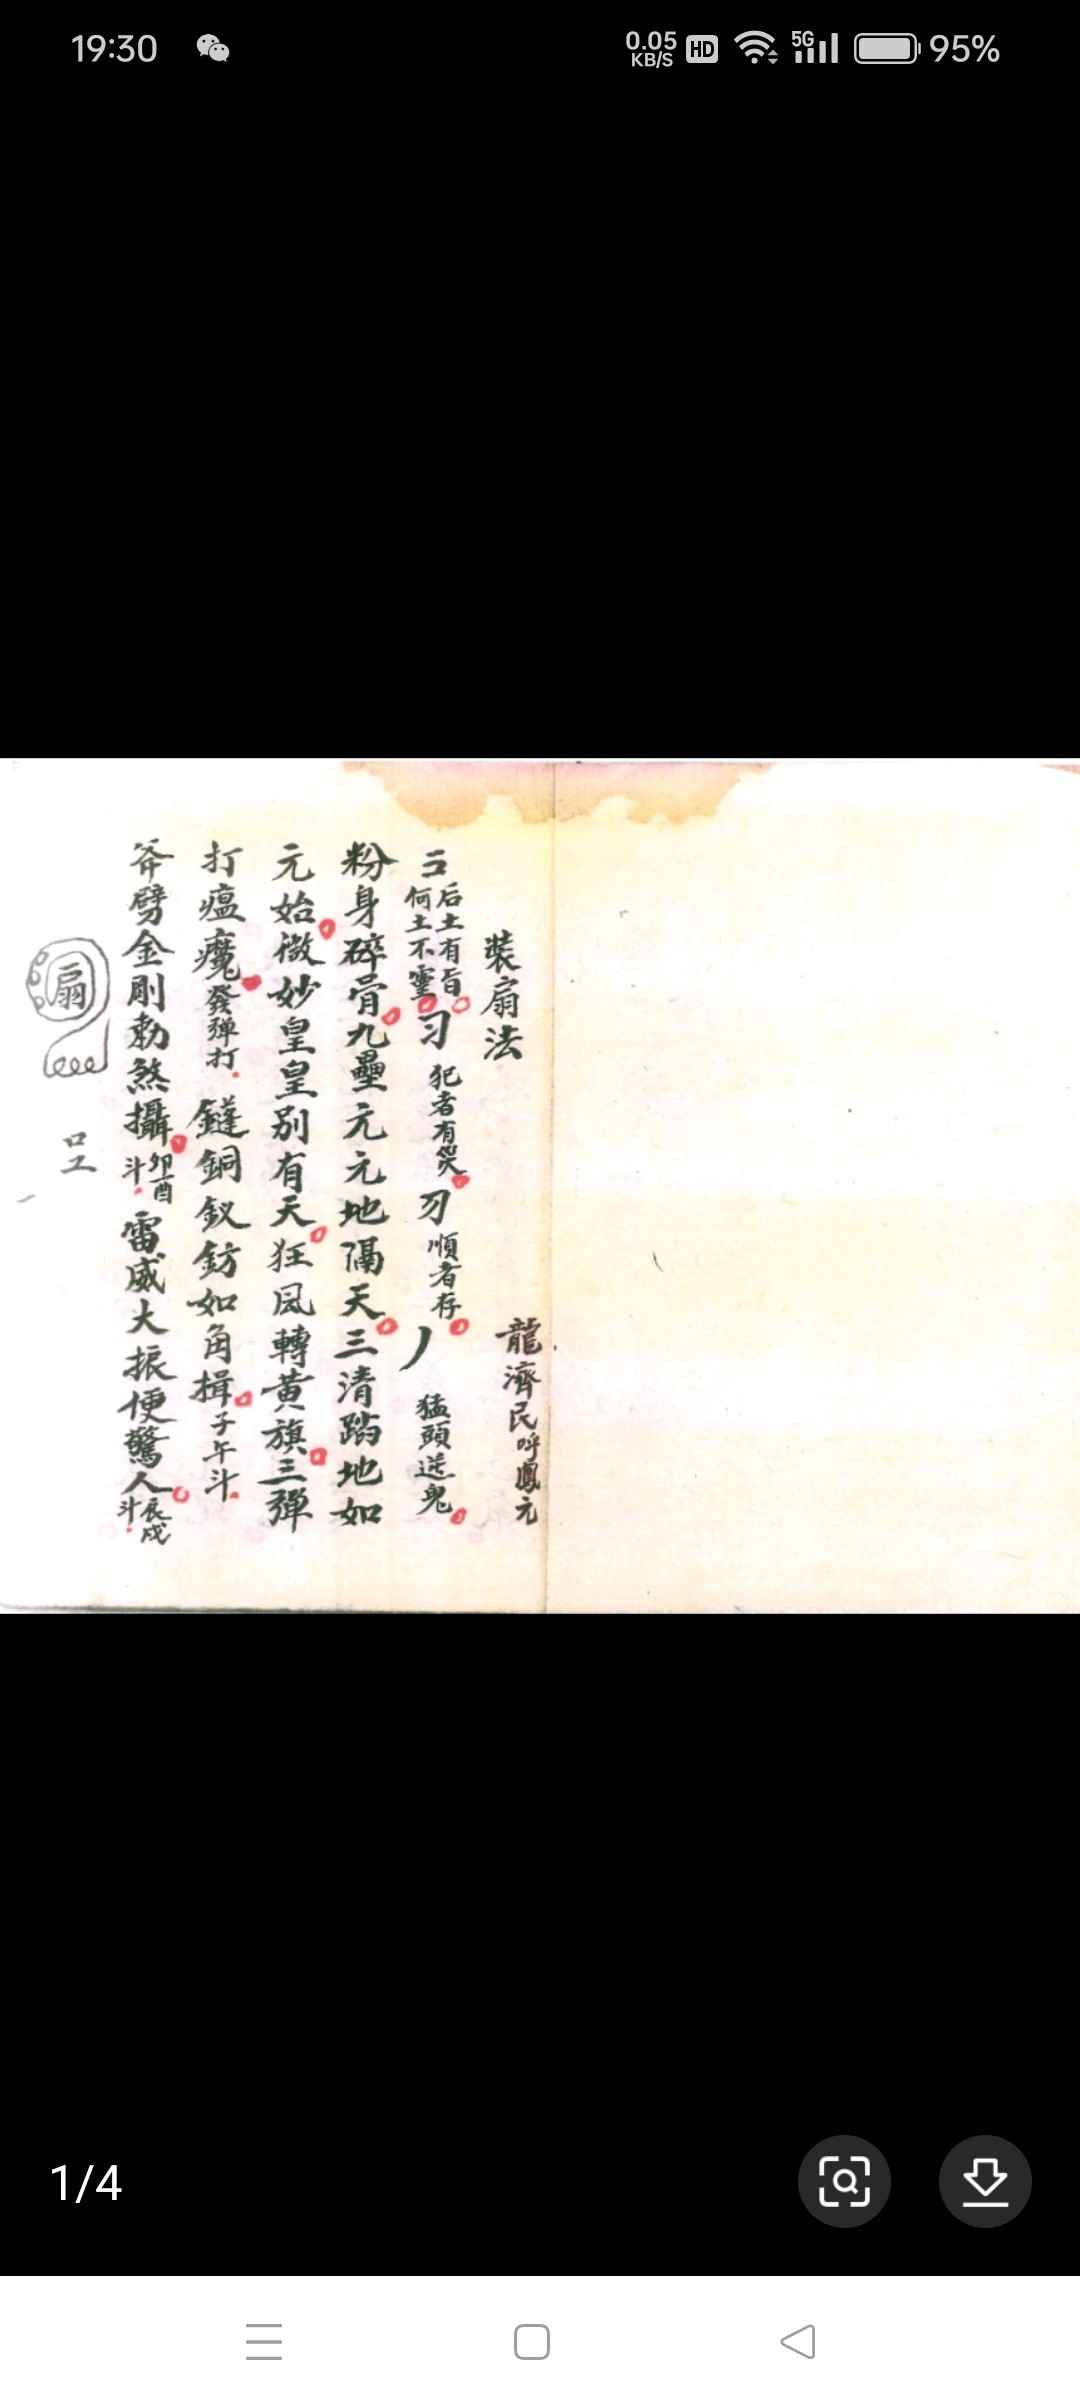 19:30
0.05 KB/S HD 5G 95%
裝扇法
龍濟民呼鳳元
后土有旨
何土不靈
犯者有災
順者存
猛頭送鬼
粉身碎骨九壘元元地隔天三清踏地如
元始微妙皇皇別有天狂風轉黃旗三彈
打瘟魔發彈打 銅釵鈁如角揖子午斗
斧劈金剛勑煞攝卯酉斗雷威大振便驚人辰戌斗
扇
1/4